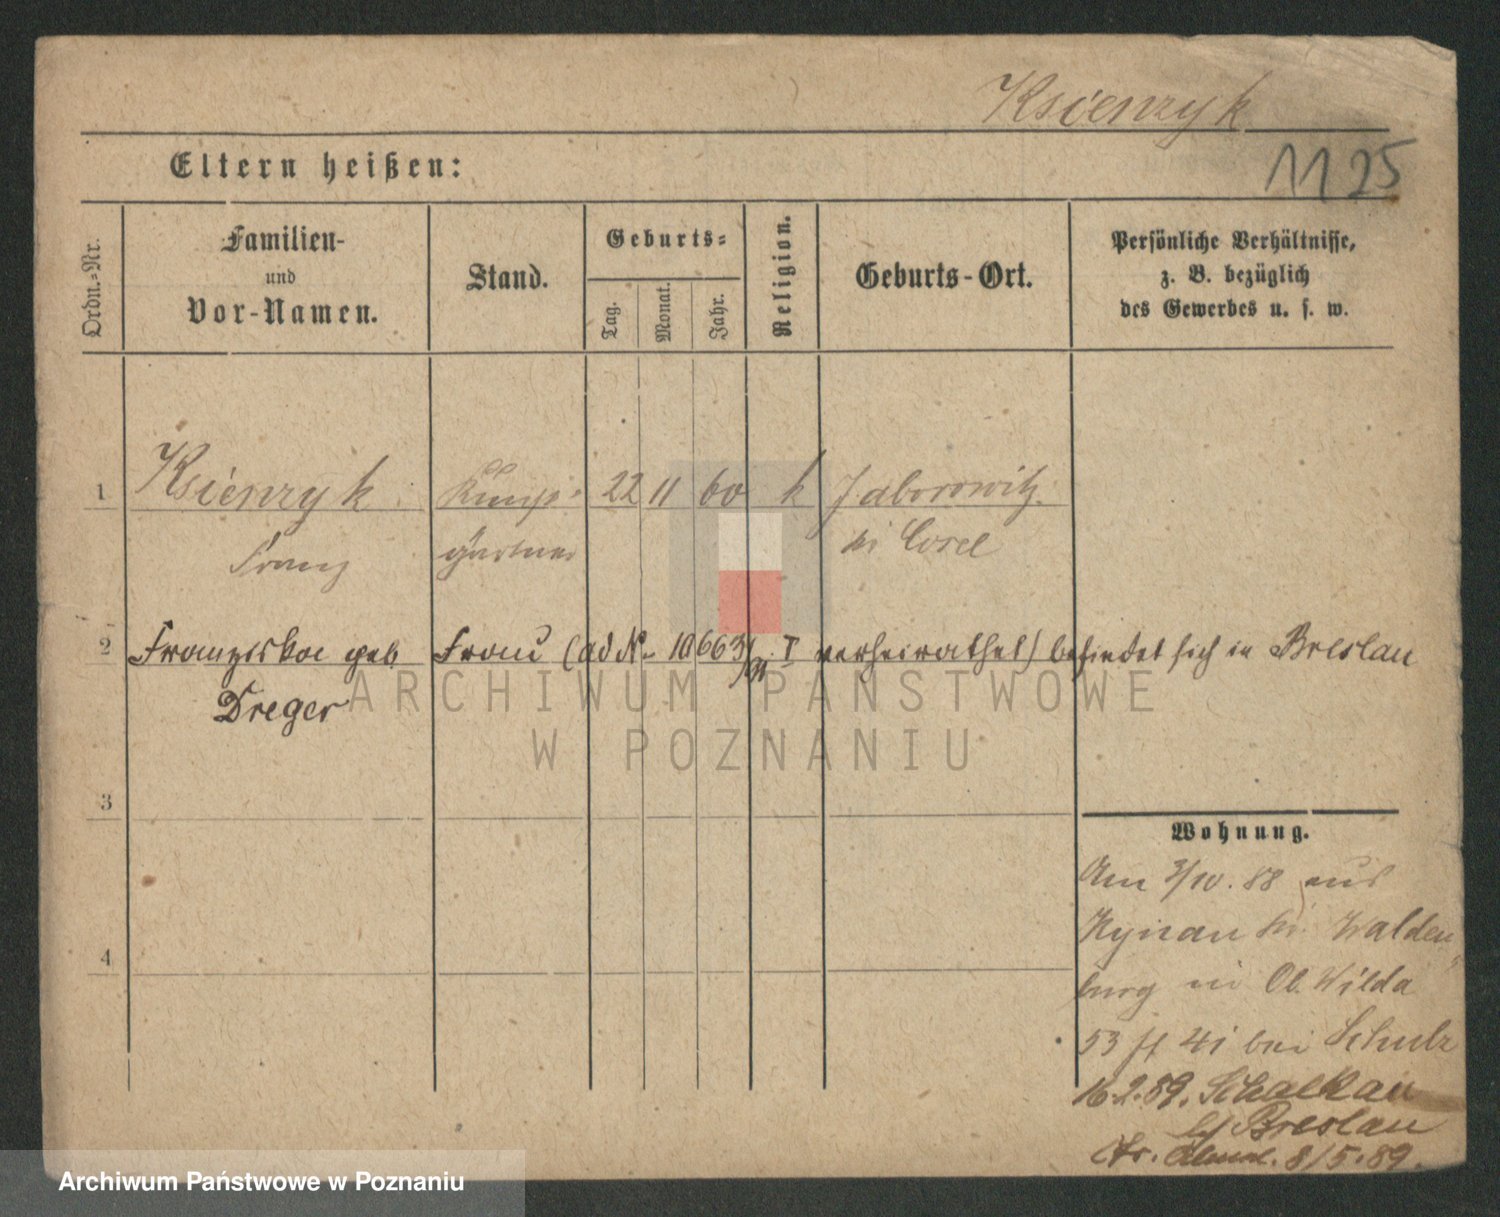 Ksienzyk
1125
Eltern heißen:
Ordn.-Nr.
Familien-
und
Vor-Namen.
Stand.
Geburts-
Tag.
Monat.
Jahr.
Religion.
Geburts-Ort.
Persönliche Verhältnisse,
z. B. bezüglich
des Gewerbes u. s. w.
1 Ksienzyk Kunst- 22 11 60 k Jaborowitz
Franz gärtner Kr Cosel
2 Franziska geb Frau (ad No 10663/ I verheirathet) befindet sich in Breslau
Dreger
ARCHIWUM PAŃSTWOWE
W POZNANIU
3
Wohnung.
Am 3/10. 88 aus
Kynau Kr. Walden
4
burg in Ob. Wilda
53 bei Schulz
16.2.89. Schalkau
b/ Breslau
8/5.89.
Archiwum Państwowe w Poznaniu